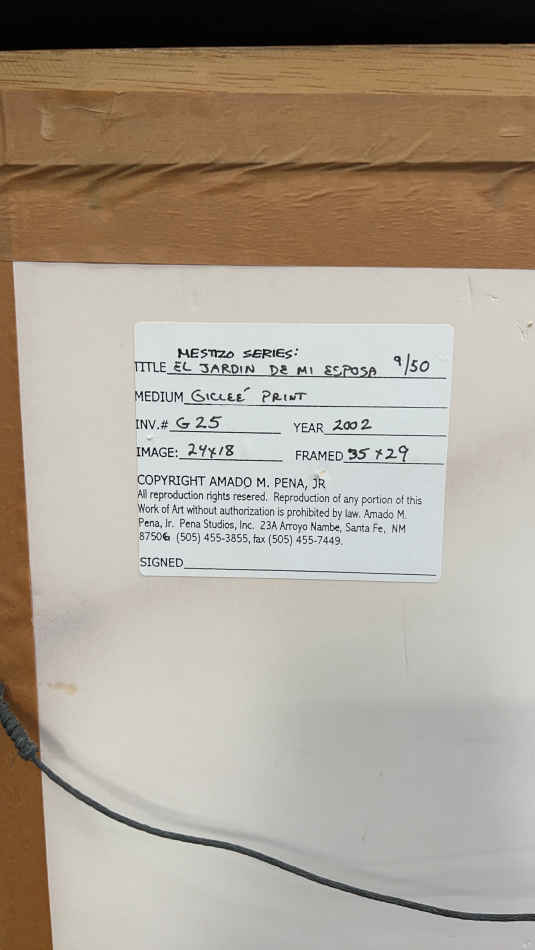 MESTIZO SERIES:
TITLE EL JARDIN DE MI ESPOSA 9/50
MEDIUM GICLEÉ PRINT
INV.# G25 YEAR 2002
IMAGE: 24x18 FRAMED 35x29
COPYRIGHT AMADO M. PENA, JR
All reproduction rights resered. Reproduction of any portion of this
Work of Art without authorization is prohibited by law. Amado M.
Pena, Jr. Pena Studios, Inc. 23A Arroyo Nambe, Santa Fe, NM
87506 (505) 455-3855, fax (505) 455-7449.
SIGNED